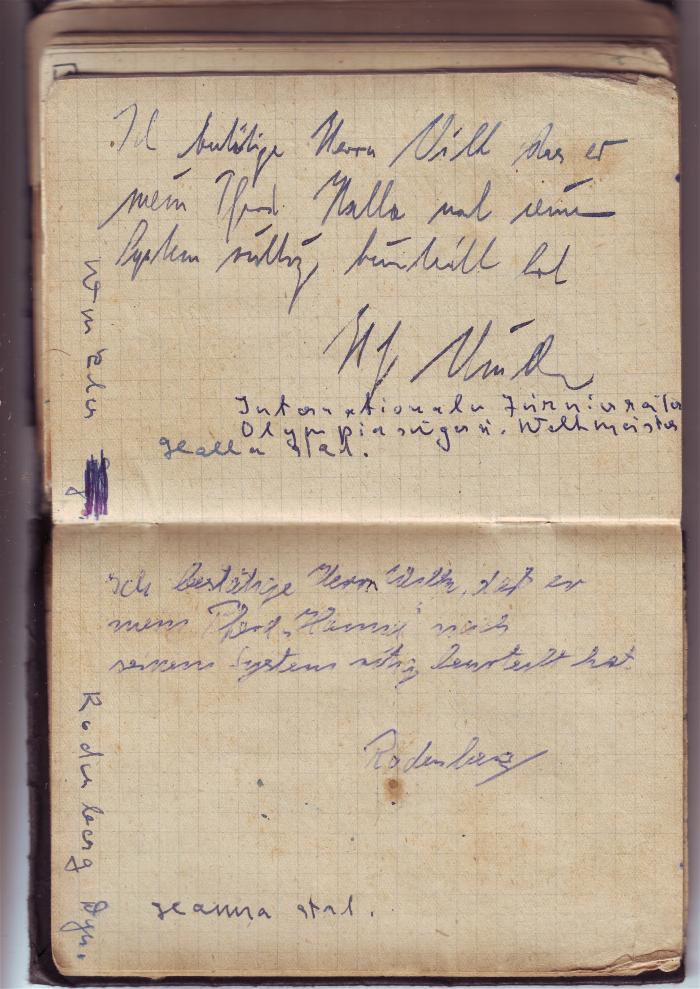 Ich bestätige Herrn Vith das er
mein Pferd Halla nach seinem
System richtig beurteilt hat
Winkler
Internationaler Turnierreiter
Olympiasieger u. Weltmeister
Halla stat.
Ich bestätige Herrn Vith, daß er
mein Pferd "Hanna" nach
seinem System richtig beurteilt hat.
Rodenberg
Rodenberg
Hanna stat.